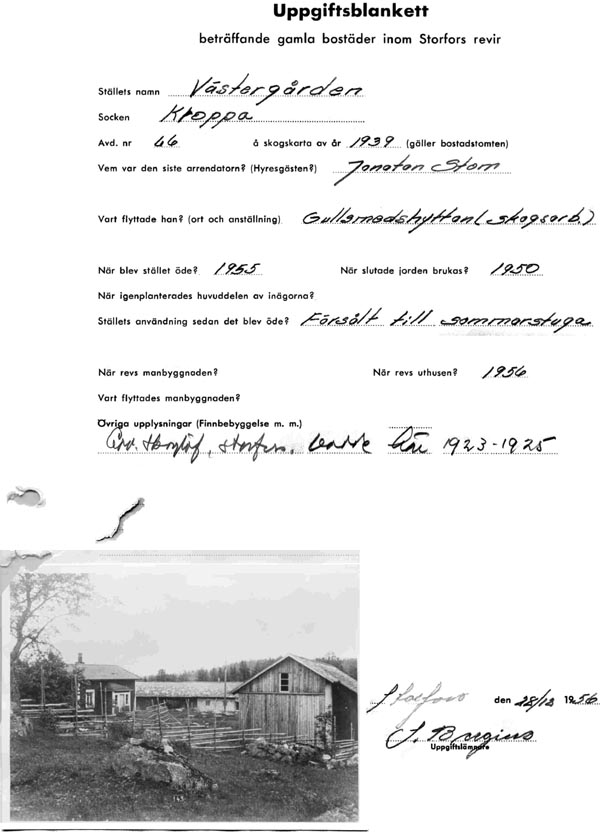 Uppgiftsblankett
beträffande gamla bostäder inom Storfors revir
Ställets namn Västergården
Socken Kroppa
Avd. nr 66 å skogskarta av år 1939 (gäller bostadstomten)
Vem var den siste arrendatorn? (Hyresgästen?) Jonatan Stam
Vart flyttade han? (ort och anställning) Gullsmedshyttan (skogsarb.)
När blev stället öde? 1955 När slutade jorden brukas? 1950
När igenplanterades huvuddelen av inägorna?
Ställets användning sedan det blev öde? Försålt till sommarstuga
När revs manbyggnaden? När revs uthusen? 1956
Vart flyttades manbyggnaden?
Övriga upplysningar (Finnbebyggelse m. m.)
Storfors, bodde här 1923-1925
Storfors den 28/12 1956
S. Bregius
Uppgiftslämnare